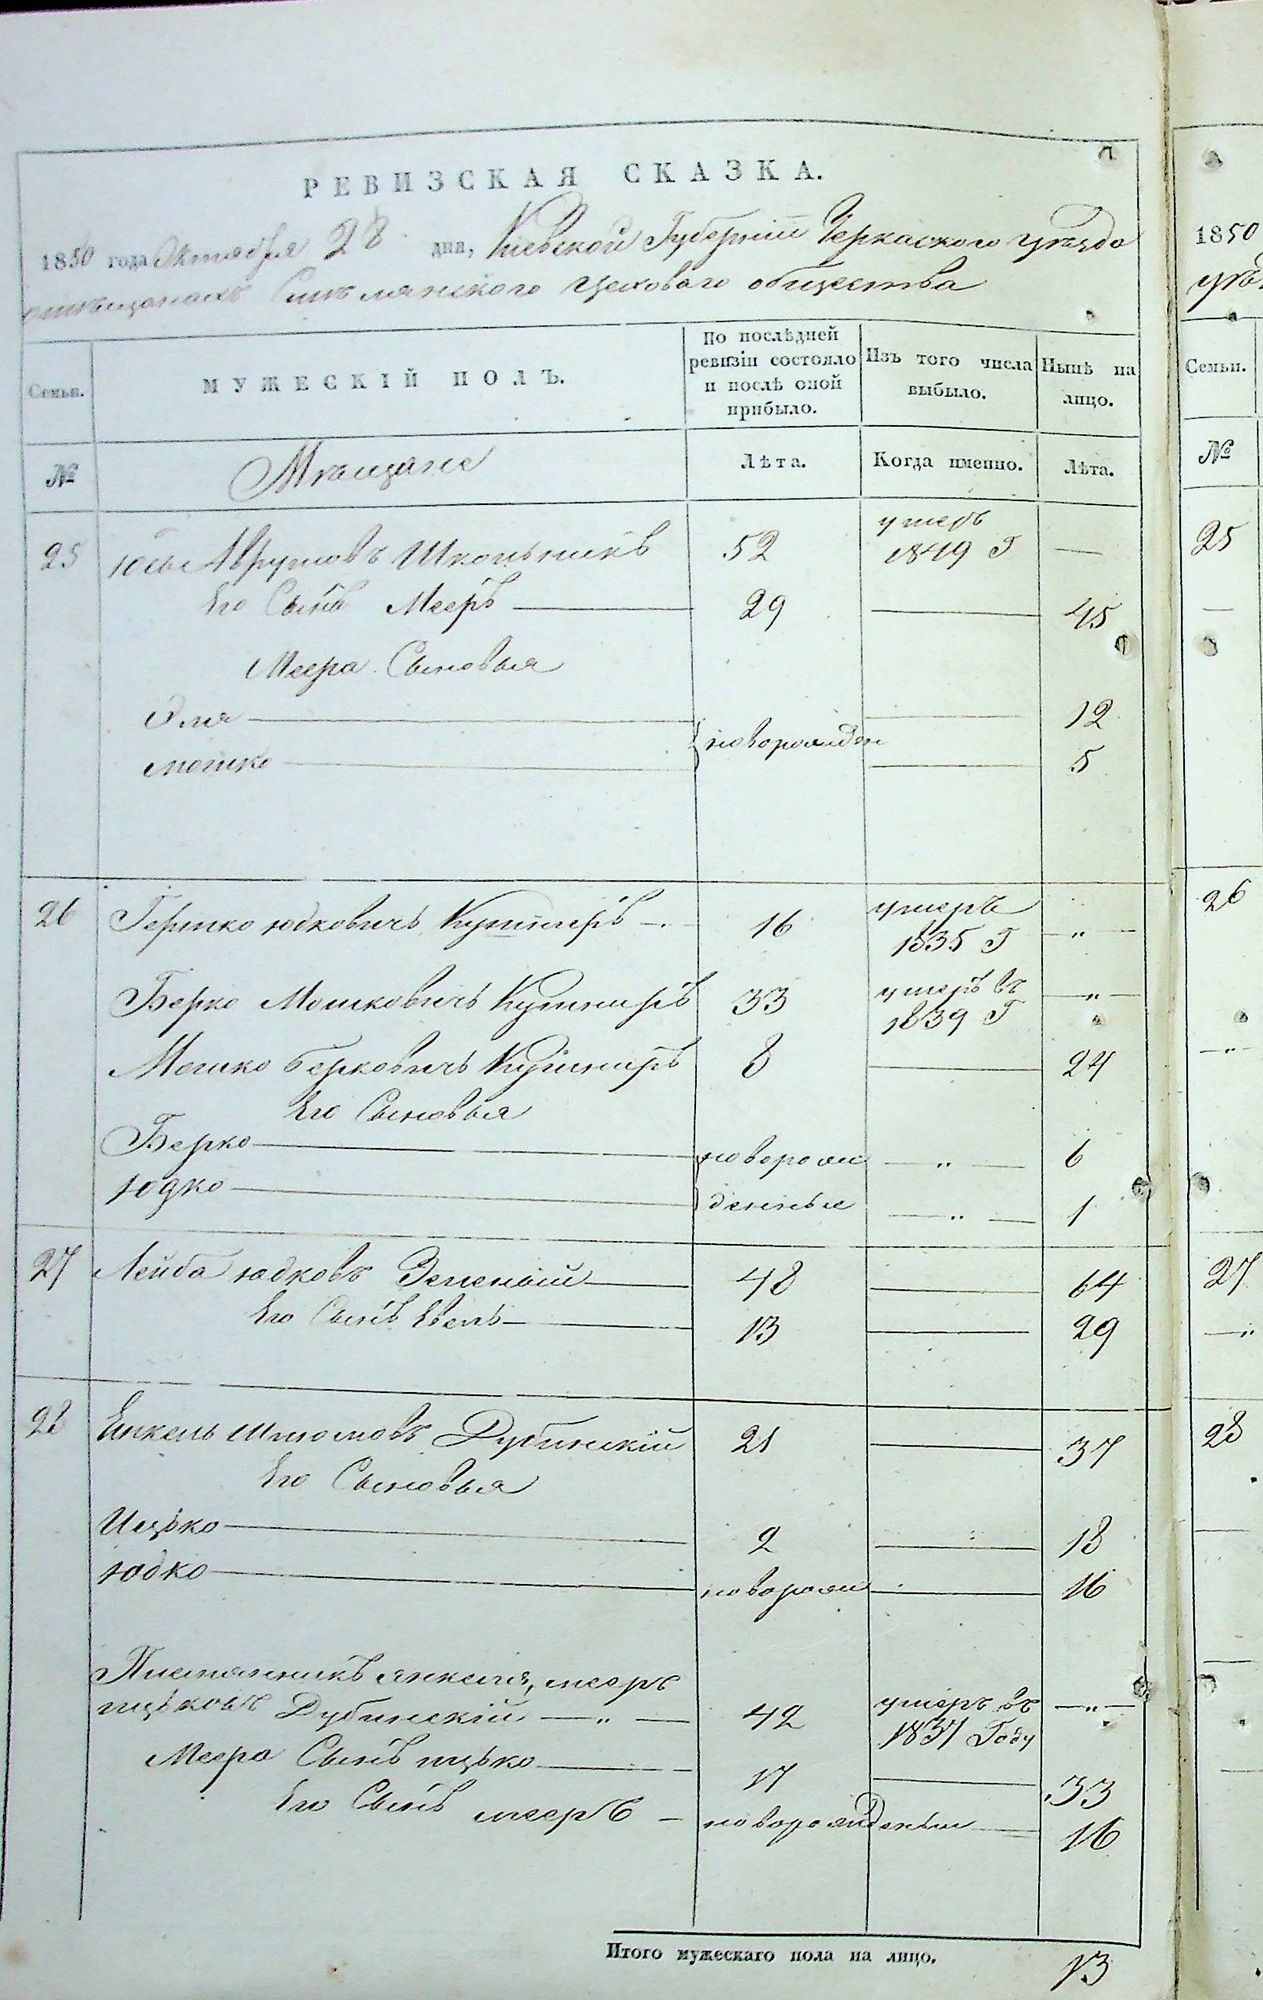 РЕВИЗСКАЯ СКАЗКА.
1850 года Октября 28 дня, Киевской Губерніи Черкаского уезда
о мещанахъ Смелянского Цеховаго общества
Семьи.
МУЖЕСКІЙ ПОЛЪ.
По послѣдней ревизіи состояло и послѣ оной прибыло.
Изъ того числа выбыло.
Нынѣ на лицо.
№
Мещане
Лѣта.
Когда именно.
Лѣта.
25 Юсь Аврумовъ Школьникъ 52 умеръ 1849 Г —
Его Сынъ Мееръ — 29 — 45
Меера Сыновья
Эля — новорожден — 12
Мошко — — 5
26 Гершко Юдковичъ Кушниръ — 16 умеръ 1835 Г — " —
Берко Мошковичъ Кушниръ 33 умеръ въ 1839 Г — " —
Мошко Берковичъ Кушниръ 8 — 24
Его Сыновья
Берко — новорож — " — 6
Юдко — денные — " — 1
27 Лейба Юдковъ Зеленый — 48 — 64
Его Сынъ — 13 — 29
28 Янкель Шлiомовъ Дубинскій 21 — 37
Его Сыновья
Ицько — 2 — 18
Юдко — новорож — 16
Племянникъ Янкеля, Мееръ
Ицьковъ Дубинскій — " — 42 умеръ въ 1837 Году — " —
Меера Сынъ Ицько — 17 — 33
Его Сынъ Мееръ — новорожденый — 16
Итого мужескаго пола на лицо. 13
1850
уез
Семьи.
№
25
—
26
— " —
27
— " —
28